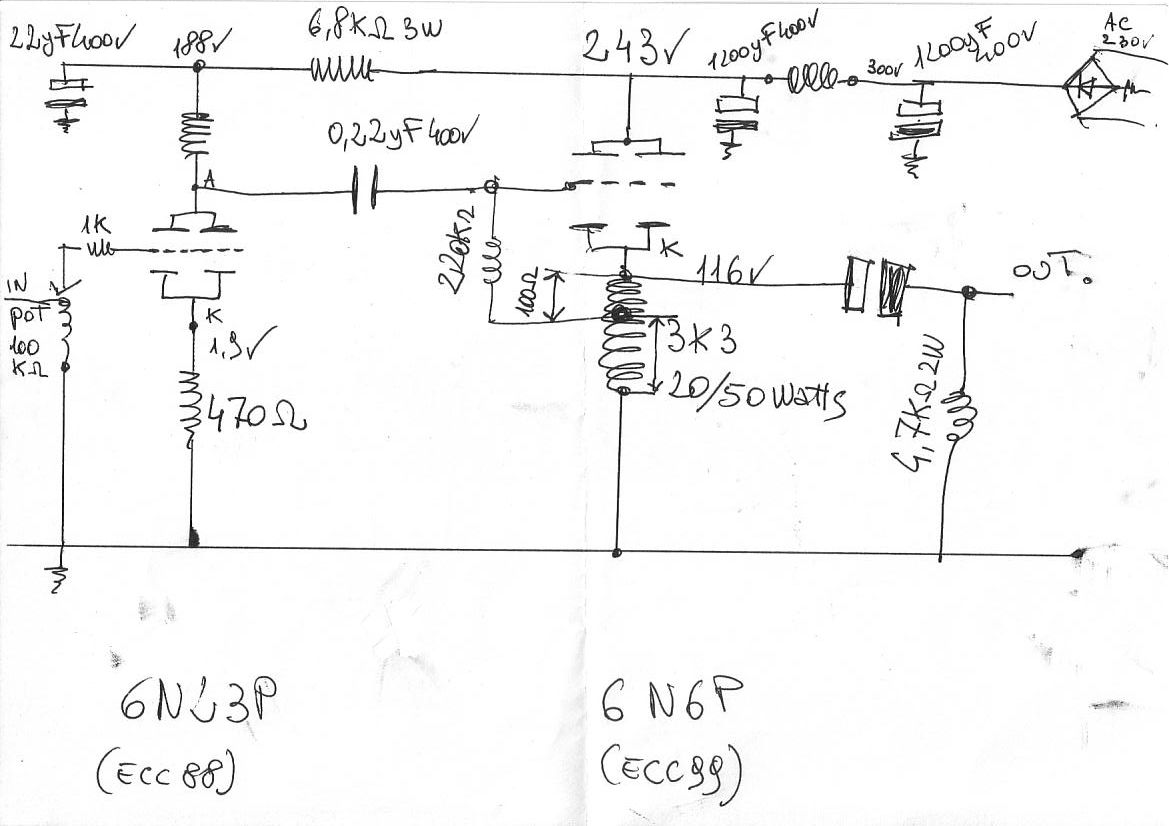 22yF400V
188V
6,8KΩ 3W
243V
1200yF400V
300V
1200yF
400V
AC
230V
0,22yF400V
A
1K
220KΩ
100Ω
K
116V
OUT.
IN
POT
100
KΩ
K
1,9V
470Ω
3K3
20/50Watts
4,7KΩ2W
6N23P
(ECC88)
6N6P
(ECC99)